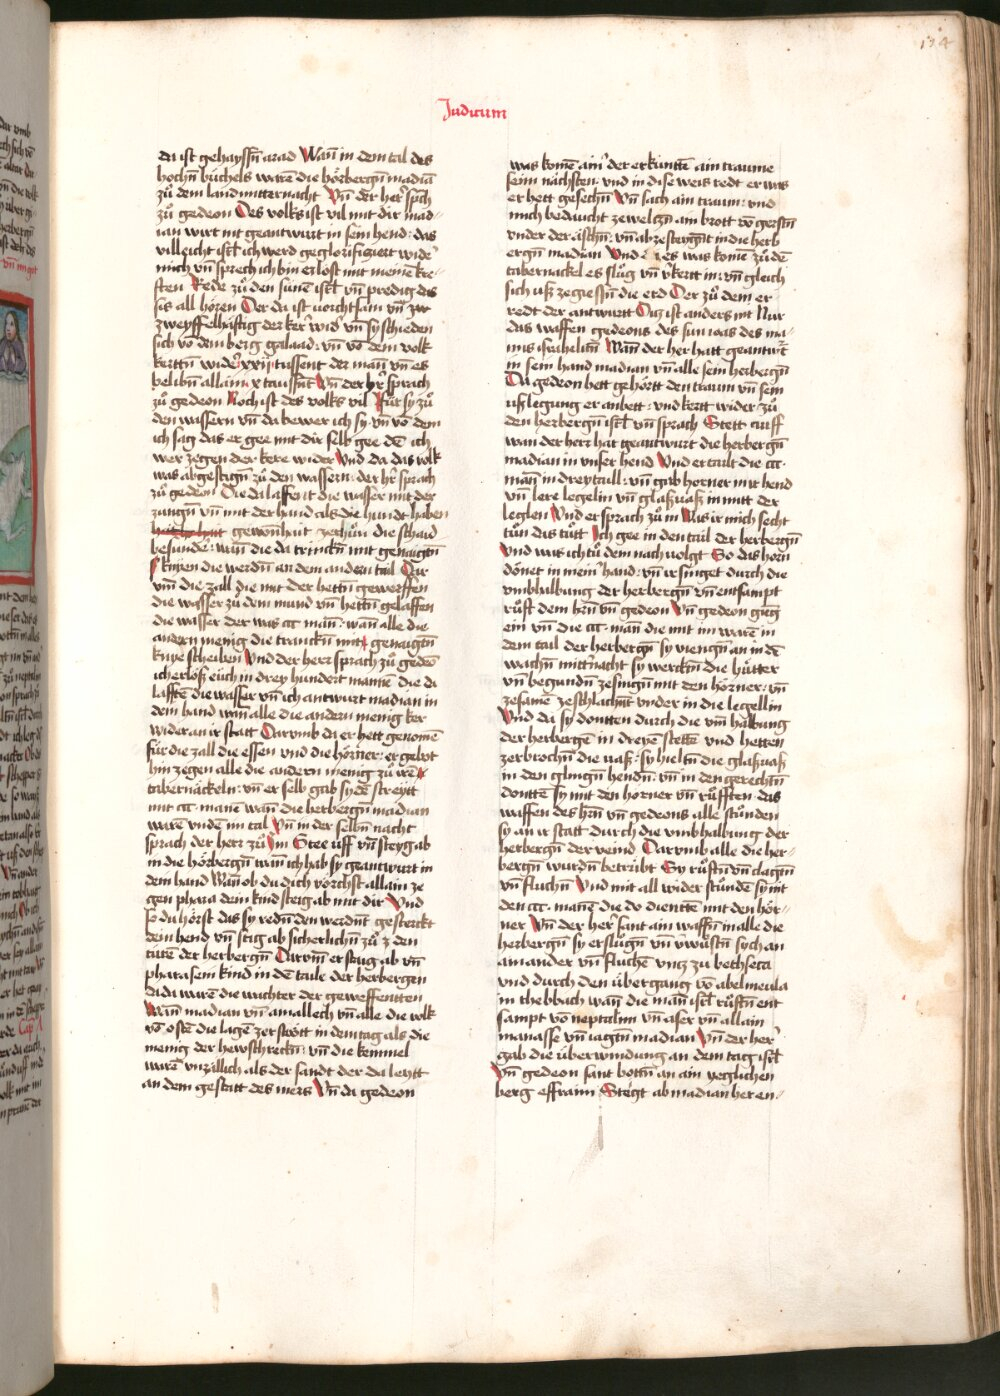 134
Judicum
da ist gehayssñ arad Wañ in dem tal des
hochñ büchels warē die hörbergñ madiā
zů dem land mitternacht Vñ der her̉ sp̄ch
zů gedeon Des volks ist vil mit dir mad-
ian wirt nit geantwurt in sein hend · das
villeicht isrl̄ ich werd geglorifiziert wider
mich vñ sprech ich bin erlöst mit meinē kre-
ften Rede zů den sünē isrl̄ vñ predig das
sis all hören Der da ist vorchtsam vñ
zweyffelhäftig der ker wid̉ vñ sy schieden
sich vō dem berg galaad · vñ vō dem volk
kertñ wider̉ xxij tussent der man vñ es
belibñ allain x tussñt Vñ der hr̄ sprach
zů gedeon Noch ist des volks vil Für sy zů
den wassern vñ da bewer ich sy · vñ vō dem
ich sag das er gee mit dir der selb gee dē ich
wer zegen der kere wider Vnd da das volk
was abgestigñ zů den wassern · der hr̄ sprach
zů gedeon Die da laffent die wasser mit der
zungñ vñ mit der hand als die hundt haben
gewonhait zethůn die schaid
besunder̉ · wañ die da trinckñ mit genaigtñ
knyen die werdñ an dem andern tail Dar
vm̄ die zall die mit der hettñ geworffen
die wasser zů dem mund vñ hettñ gelaffen
die wasser der was ccc man · wan alle die
andern menig die tranckñ mit genaigtñ
knye scheiben Vnd der herr sprach zů gedeō
ich erlöß euch in drey hundert mannē die da
lafften die wasser vñ ich antwurt madian in
dein hand wañ alle die andern menig ker
wider an ir statt Darumb da er hett genomē
für die zall die essen vnd die hörner · er gebot
hin zegen alle die andern menig zů irē
tabernackeln · vñ er selb gab sich dē streytt
mit ccc · manē wañ die herbergñ madian
warē vndē im tal Vñ in der selbñ nacht
sprach der herr zů Jm Stee uff vñ steyg ab
in die hörbergñ wañ ich hab sy geantwurt in
dein hand Wañ ob du dich vörchst allain ze
gen phara dein kind steig ab mit dir Vnd
so du hörst das sy redñ den werdñt gesterckt
dein hend vñ stig ab sicherlichñ zů z den
tailē der herbergñ Darum̄ er staig ab vñ
phara sein kind in dē taile der herbergen
da da warē die wachter der geweffentten
Wañ madian vñ amallech vñ alle die volk
vō ostē die lagē zerstrött in dem tag als die
menig der hewschreckñ · vñ die kemmel
warē vnzällich als der sandt der da leytt
an dem gestatt des mers Vñ da gedeon
was komē ainer̉ der erkuntte ain traume
seim nächsten · vnd in diser weis redt er was
er hett gesechñ Vñ sach ain traum · vnd
mich bedaucht zewelczñ ain brott vō gerstñ
vnder der äschñ · vñ abzestaygñt in die herb
ergñ madian Vnd es was komē zů dē
tabernackel es slůg vñ vkert in · vñ gleich
sich uß zegiessñ die erd Der zů dem er
redt der antwurt Diz ist anders nit Nur
das waffen gedeons des sun ioas des ma-
nns israhelitñ Wañ der her hatt geantwrt̄
in sein hand madian vñ alle sein herbergñ
Da gedeon hett gehörtt den traum vñ sein
uslegung er anbett · vnd kertt wider zů
den herbergñ isrl̄ vñ sprach Stett uff
wan der herr hat geantwurt die herbergñ
madian in vnser hend Vnd er tailt die ccc ·
man in drey taill · vñ gab hörner in ir hend
vñ lere legelin vñ glaßuaß in mitt der
leglen Vnd er sprach zů in Was ir mich secht
tůn das tůtt Jch gee in den tail der herbergñ
vnd was ich tů dem nach volgt So das horn
dönet in meiner̉ hand · vñ ir singet durch die
vmbhalbung der herbergñ vñ entsampt
růfft dem hrñ vñ gedeon Vñ gedeon gieg
ein vñ die ccc · man die mit im warē in
dem tail der herbergñ sy viengñ an in dē
wachñ mittnacht sy werckñ die hütter
vñ begundñ zesingñ mit den hörner · vñ
zesamē zeschlachñt vnder in die legellin
Vnd da sy dontten durch die vm̄ halbung
der herbergē in dreyē stettē vnd hetten
zerbrochñ die uaß · sy hieltñ die glaßuaß
in den glingñ hendñ · vñ in den gerechtñ
dontten sy mit den hörner vñ růfften · das
waffen des hrñ vñ gedeons alle stůnden
sy an ir statt durch die vmbhalbung der
herbergñ der veind Darumb alle die her-
bergñ wurdñ betrübt Sy růftñ vñ clagtñ
vñ fluchñ Vnd mit all wider stůnden sy mit
den ccc · manē die do dientē mit den hör-
ner Vñ der her̉ sant ain waffñ in alle die
herbergñ sy erslůgñ vñ vwůstñ sych an
ain ander vñ fluchē vncz zu bethseca
vnd durch den übergang vō abelmeula
in thebbach wañ die man isrl̄ růstñ ent
sampt vō neptalim vñ aser vñ allain
manasse vñ iagtñ madian Vñ der her̉
gab die überwindung an dem tag isrl̄
Vñ gedeon sant bottñ an ain yeglichen
berg effraim Steigt ab madian her en-